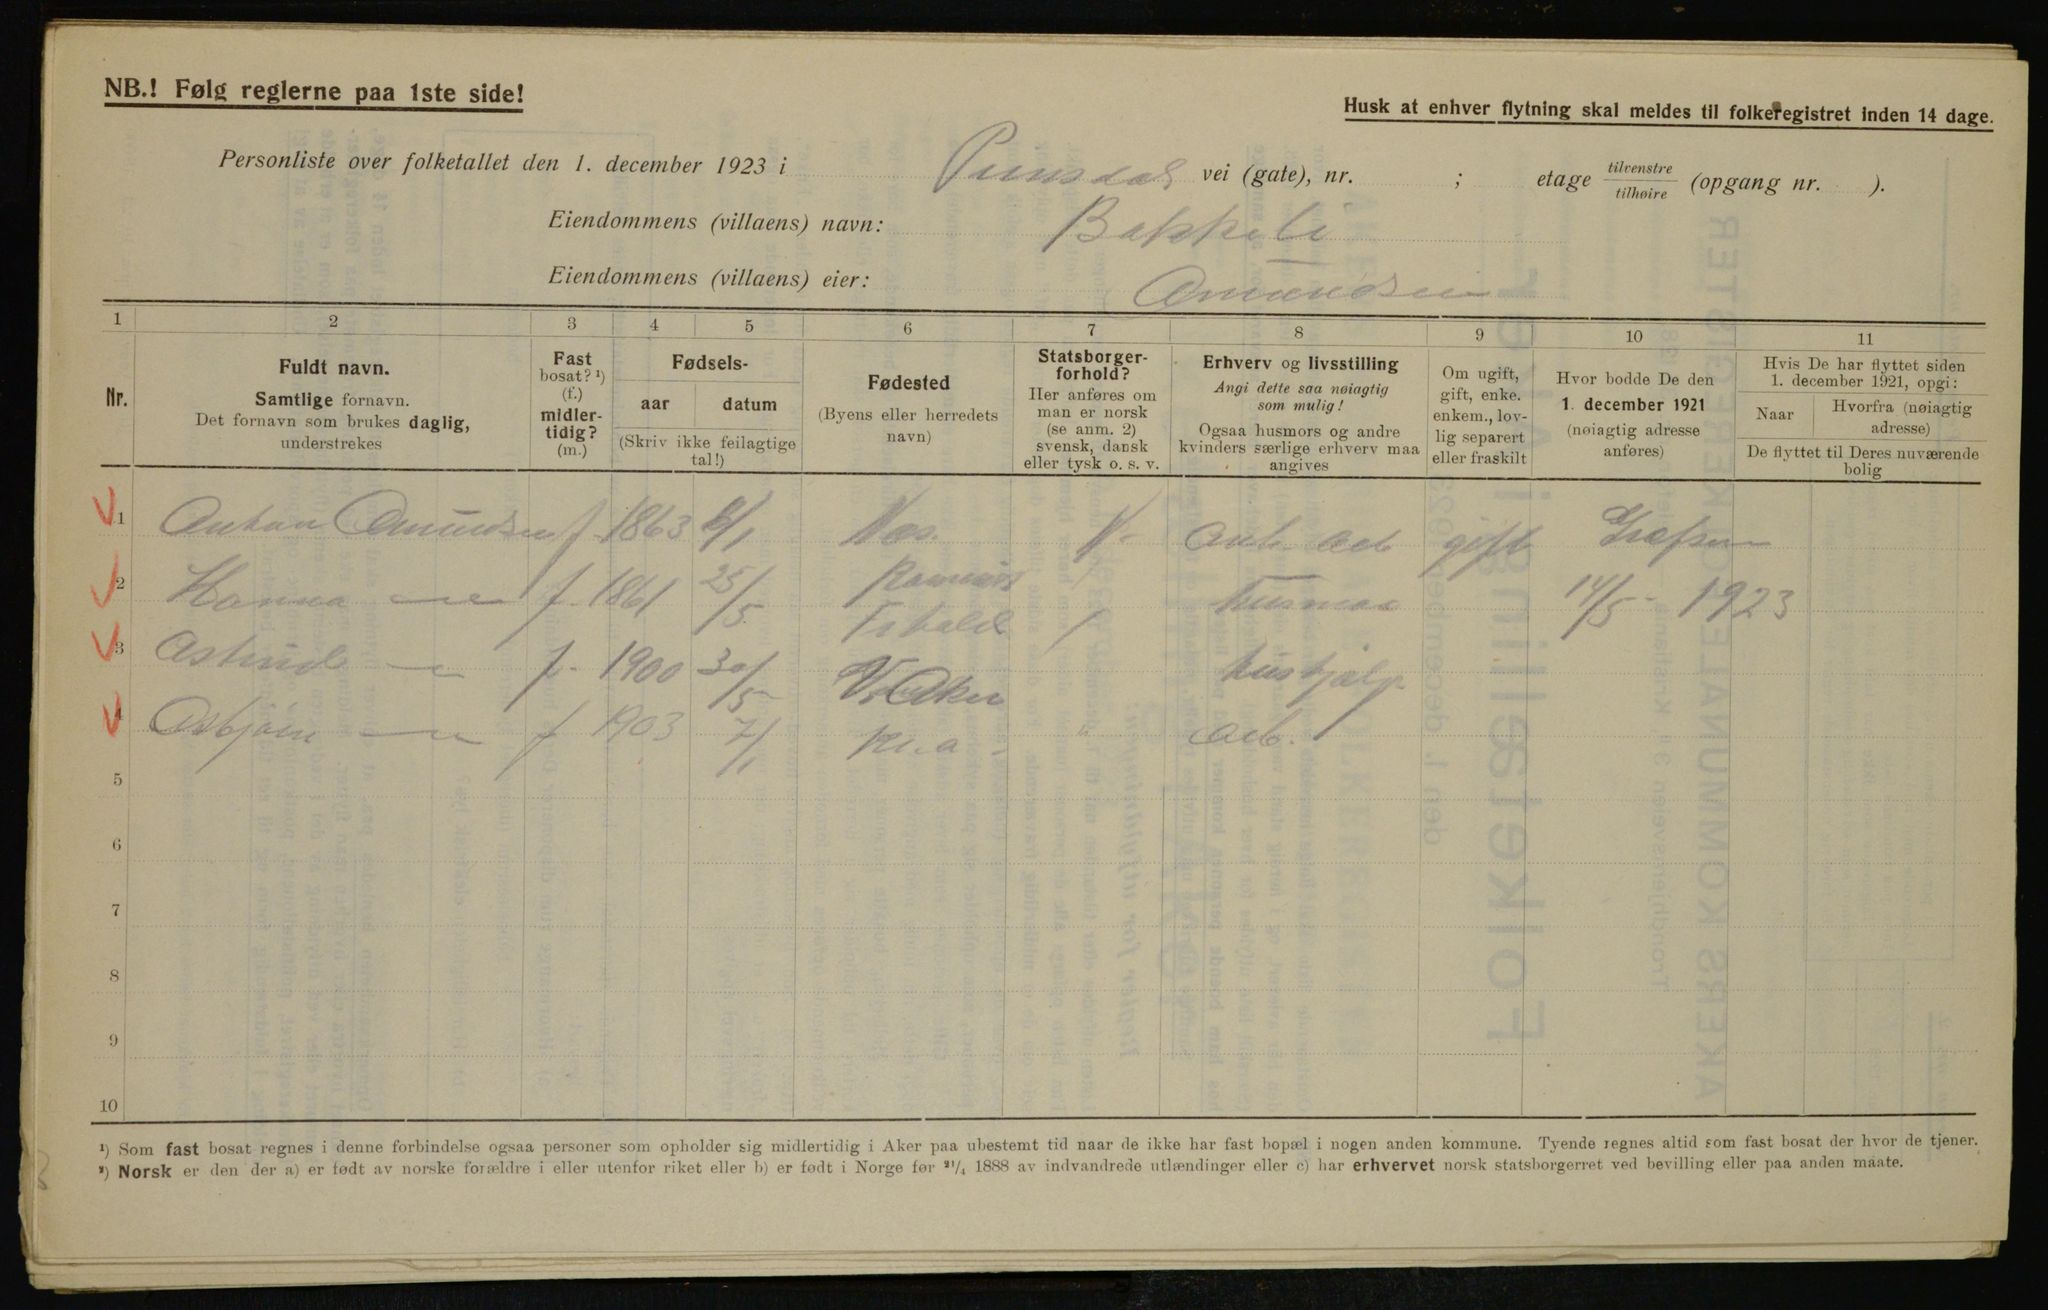 NB.! Følg reglerne paa 1ste side!
Husk at enhver flytning skal meldes til folkeregistret inden 14 dage.
Personliste over folketallet den 1. december 1923 i vei (gate), nr. ; etage tilvenstre tilhøire (opgang nr. ).
Eiendommens (villaens) navn: Bakkeli
Eiendommens (villaens) eier: Amundsen
1 2 3 4 5 6 7 8 9 10 11
Nr.
Fuldt navn.
Samtlige fornavn.
Det fornavn som brukes daglig,
understrekes
Fast
bosat? ¹)
(f.)
midler-
tidig?
(m.)
Fødsels-
aar datum
(Skriv ikke feilagtige
tal!)
Fødested
(Byens eller herredets
navn)
Statsborger-
forhold?
Her anføres om
man er norsk
(se anm. 2)
svensk, dansk
eller tysk o. s. v.
Erhverv og livsstilling
Angi dette saa nøiagtig
som mulig!
Ogsaa husmors og andre
kvinders særlige erhverv maa
angives
Om ugift,
gift, enke.
enkem., lov-
lig separert
eller fraskilt
Hvor bodde De den
1. december 1921
(nøiagtig adresse
anføres)
Hvis De har flyttet siden
1. december 1921, opgi:
Naar Hvorfra (nøiagtig
adresse)
De flyttet til Deres nuværende
bolig
1 Anton Amundsen f. 1863 6/1 Næs. N- gift Grefsen
2 Hanna f. 1861 25/5 husmor 14/5 - 1923
3 Astrid f. 1900 30/5 V. Aker hushjælp
4 Asbjørn f 1903 7/1 Kr.a - " Arb.
5
6
7
8
9
10
¹) Som fast bosat regnes i denne forbindelse ogsaa personer som opholder sig midlertidig i Aker paa ubestemt tid naar de ikke har fast bopæl i nogen anden kommune. Tyende regnes altid som fast bosat der hvor de tjener.
²) Norsk er den der a) er født av norske forældre i eller utenfor riket eller b) er født i Norge før ²¹/₄ 1888 av indvandrede utlændinger eller c) har erhvervet norsk statsborgerret ved bevilling eller paa anden maate.